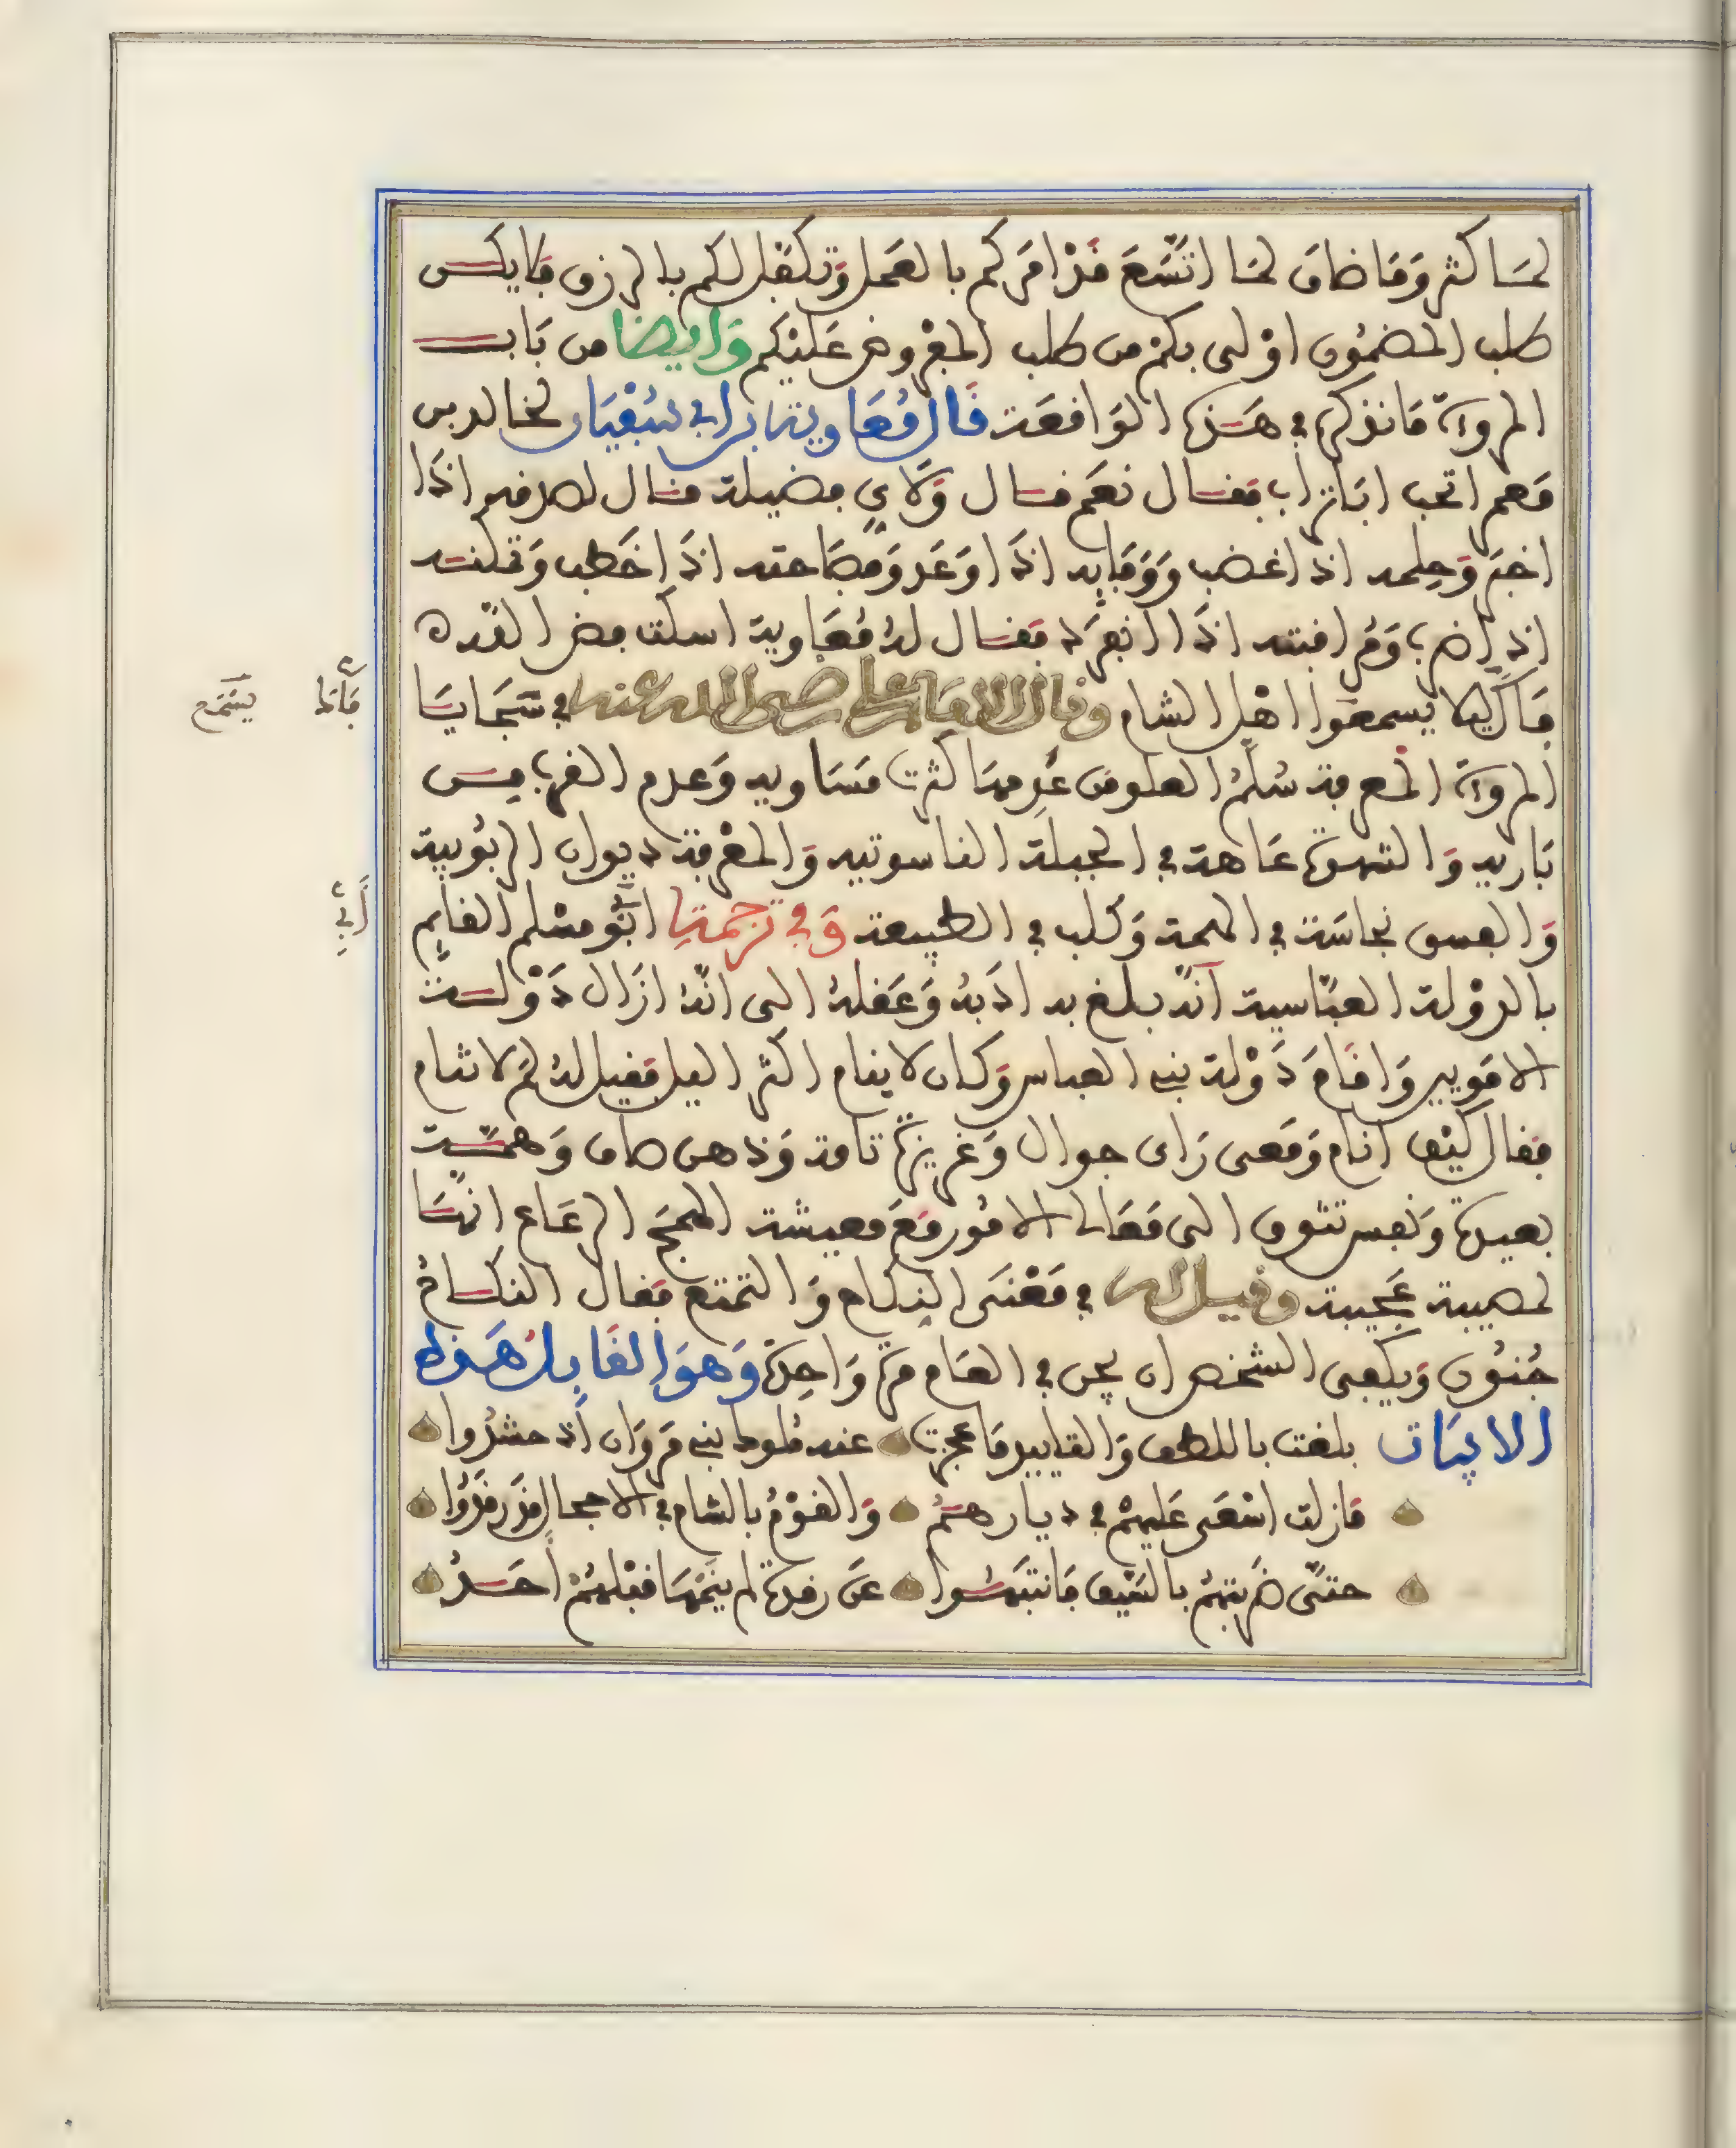 لمـا كثر وَمَا ضاق لمـا اتَّسَعَ قَدْ امَركم بالعَمل وَتكفّل لكم بالرزق فلا يكـن
طلب المضمُون اوْلى بكمْ من طلب المفْروض عَليْكم وَايضا من بَاب
المروءة مَا نذكره في هَـذه الوَاقعَة قَال مُعَاوية بن ابي سُفيَان لخالد بن
مَعمر اتحب ابَا تراب فقـال نعَم قـال وَلايّ فضيلة قـال لصدقه اذَا
اخبَر وَحِلمه اذا غضب وَوَفَايه اذَا اوَعَد وَفصَاحته اذَا خَطب وَثَلثـه
اذَا ضرب وَمُرافبته اذَا انفرَد فقـال لهُ مُعَاوية اسكت فض الله فاه
فاك ليلا يسمعَوا اهْل الشام وقال الامام علي رضي الله عنه في سَجَايـا
المروءة المعرفة سُلمُ العلو من عَدِمهَا كثرت مَسَاويه وَعدم القرب مِـن
بَاريه وَالشهوَة عَاهة في الجبلَة الناسوتيه وَالمعْرفة ديوان الربُوبية
وَالفسق نجاسَة في الهمة وَكلب في الطبيعة وَفي ترجمة ابُو مسْلم القايم
بالدوْلة العبّاسية انّه بلغ به ادَبهُ وَعَقلهُ الى انّهُ ازَال دَوْلـة
الامَويين وَاقَامَ دَوْلة بني العباس وَكـان لا ينام اكثر اليل فقيل لهُ لمَ لا تنام
فقال كيْف انام وَمَعى رَاى جوال وَغريزة تامة وَذهن صاف وَهمّـة
بعيدة وَنفس تتوق الى مَعَالي الامُور مَعَ معيشة الهمَج الرعَاع انهّـا
لمصيبة عَجيبة وقيل له في مَعْنَى النِكاح وَالتمتع فقال النكـاحُ
جُنُون وَيكفى الشخص ان يجن في العَام مرة وَاحِدَة وَهوَ القَايل هَـذه
الابيَات بلغت باللطف وَالتدابير مَا عجزت عنه ملوك بني مَروَان اذ حشدُوا
مَا زلت اسْعَى عَليهمْ في ديارهـمُ وَالقوْمُ بالشام في الاحجال قد رقدُوا
حتىّ ضرَبتهمْ بالسّيْف فانتبهـُوا عَن رقدة لم ينَمْهَا قبْلهمْ احَـدُ
فاك
يسمع
أبي